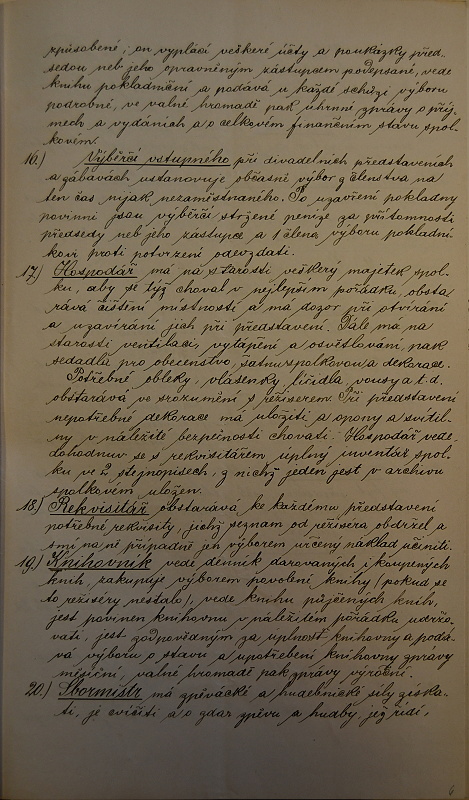 způsobené; on vyplácí veškeré účty a poukázky před-
sedou neb jeho oprávněným zástupcem podepsané, vede
knihu pokladniční a podává u každé schůzi výboru
podrobné, ve valné hromadě pak úhrnné zprávy o příj-
mech a vydáních a o celkovém finančním stavu spol-
kovém.
16.) Výběrčí vstupného při divadelních představeních
a zábavách ustanovuje občasně výbor z členstva na
ten čas nijak nezaměstnaného. Po uzavření pokladny
povinni jsou výběrčí stržené peníze za přítomnosti
předsedy neb jeho zástupce a 1 člena výboru pokladní-
kovi proti potvrzení odevzdati.
17.) Hospodář má na starosti veškerý majetek spol-
ku, aby se týž choval v nejlepším pořádku, obsta
rává čištění místnosti a má dozor při otvírání
a uzavírání jich při představení. Dále má na
starosti ventilaci, vytápění a osvětlování, pak
sedadla pro obecenstvo, šatnu spolkovou a dekorace.
Potřebné obleky, vlásenky, líčidla, vousy a t.d.
obstarává ve srozumění s režiserem. Při představení
nepotřebné dekorace má uložiti a opony a svítil-
ny v náležité bezpečnosti chovati. Hospodář vede
dohodnuv se s rekvisitářem úplný inventář spol-
ku ve 2 stejnopisech, z nichž jeden jest v archivu
spolkovém uložen.
18.) Rekvisitář obstarává ke každému představení
potřebné rekvisity, jichž seznam od režiséra obdržel a
smí na ně případně jen výborem určený náklad učiniti.
19.) Knihovník vede denník darovaných i koupených
knih, zakupuje výborem povolené knihy (pokud se
to režiséry nestalo), vede knihu půjčených knih,
jest povinen knihovnu v náležitém pořádku udržo-
vati, jest zodpovědným za úplnost knihovny a podá-
vá výboru o stavu a upotřebení knihovny zprávy
měsíční, valné hromadě pak zprávy výroční.
20.) Sbormistr má zpěvácké a hudebnické síly získa-
ti, je cvičiti a o zdar zpěvu a hudby, jež řídí,
6